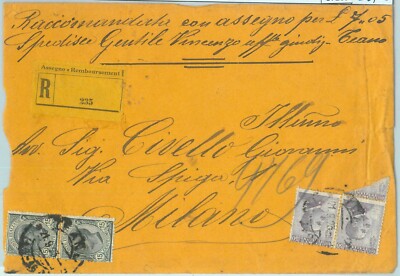 Raccomandata con assegno per £ 7.05
Spedisce Gentile Vincenzo uff giudiz. Teano
Assegno - Remboursement
R
235
Illmo
Avv. Sig. Civello Giovanni
Via Spiga
Milano
15
15